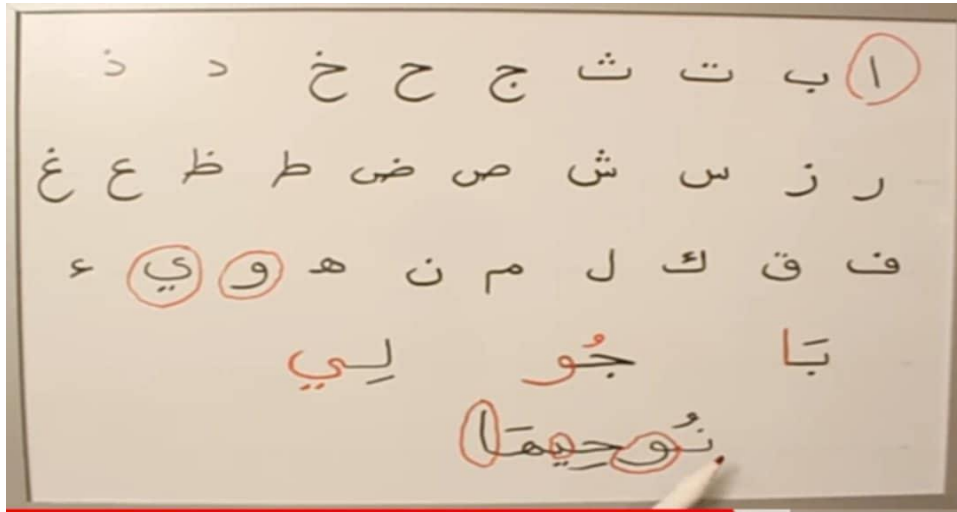 ا ب ت ث ج ح خ د ذ
ر ز س ش ص ض ط ظ ع غ
ف ق ك ل م ن ه و ي ء
بَا جُو لِي
نُوحِيهَا